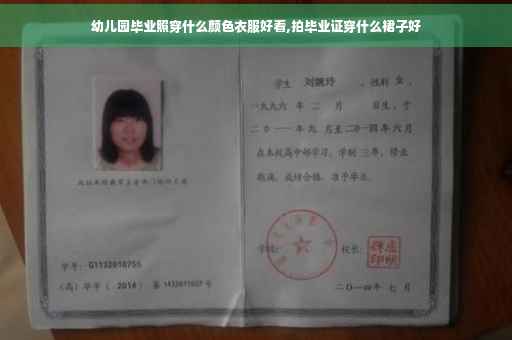 幼儿园毕业照穿什么颜色衣服好看,拍毕业证穿什么裙子好
学生 刘婉玲 ,性别 女 ,
一九九六 年 二 月 日生,于
二〇一一年九 月至二〇一四年六月
在本校高中部学习,学制 三年,修业
期满,成绩合格,准予毕业。
学号: G1132010755
(高) 毕字 ( 2014 ) 第 1432011607 号
学校:
校长:
二〇一四年 七 月